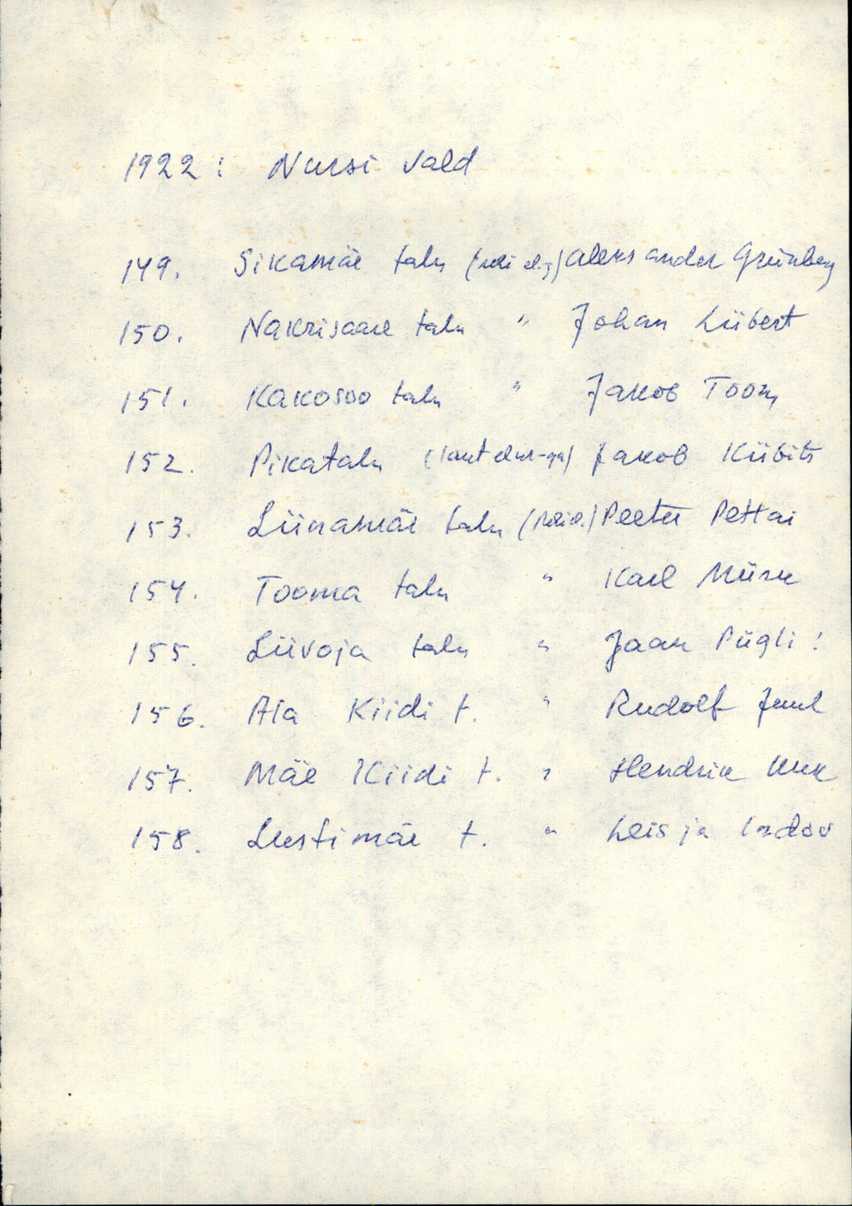 1922: Nursi vald
149. Sikamäe talu Aleksander Grünberg
150. Nakrisaare talu " Johan Liibert
151. Kakosoo talu " Jakob Toom
152. Pikatalu Jakob Kiibits
153. Liinamäe talu Peeter Pettai
154. Tooma talu " Karl Mürk
155. Liivoja talu " Jaan Pügli!
156. Ala Kiidi t. " Rudolf
157. Mäe Kiidi t. " Hendrik
158. Lustimäe t. "